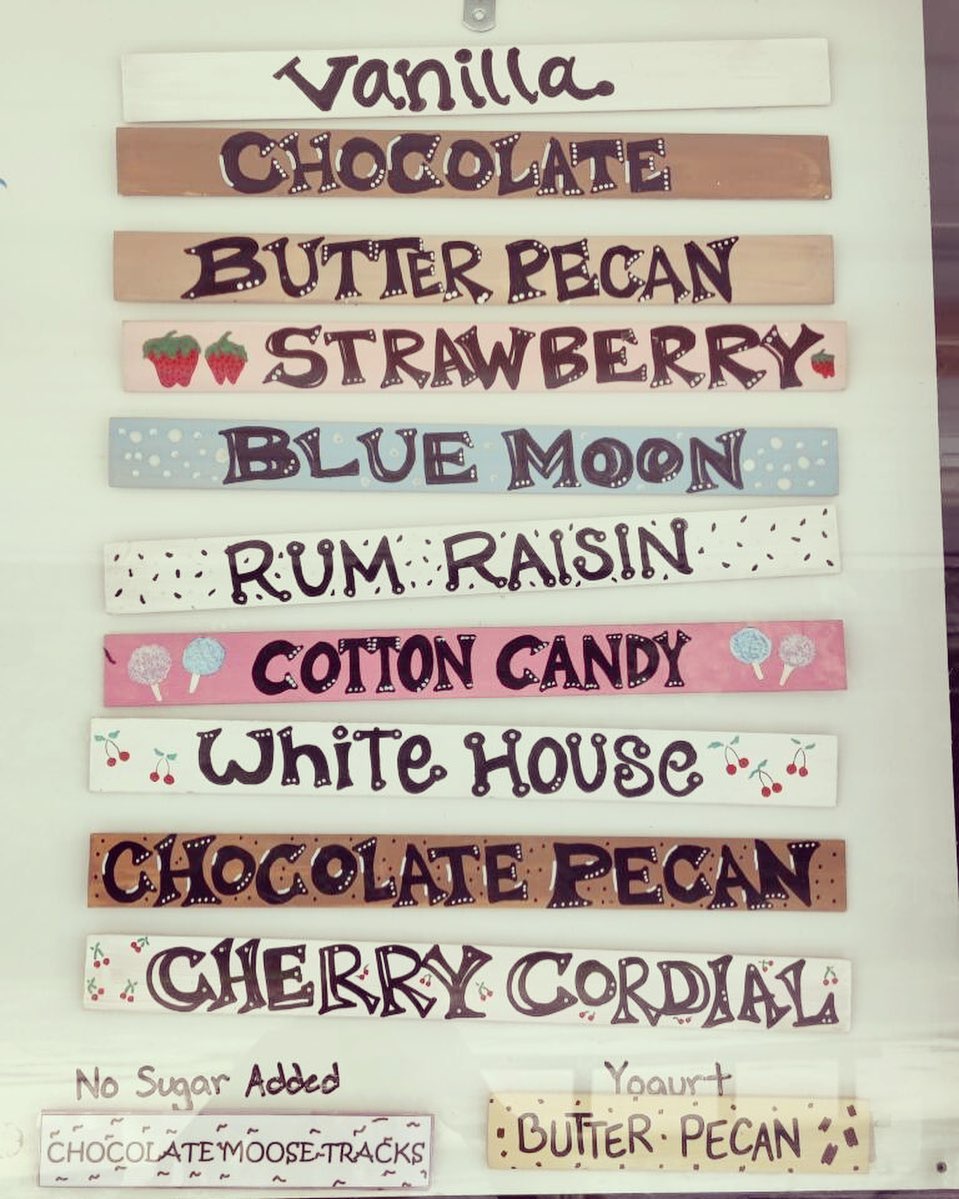 Vanilla
CHOCOLATE
BUTTER PECAN
STRAWBERRY
BLUE MOON
RUM RAISIN
COTTON CANDY
White House
CHOCOLATE PECAN
CHERRY CORDIAL
No Sugar Added
Yogurt
CHOCOLATE MOOSE TRACKS
BUTTER PECAN